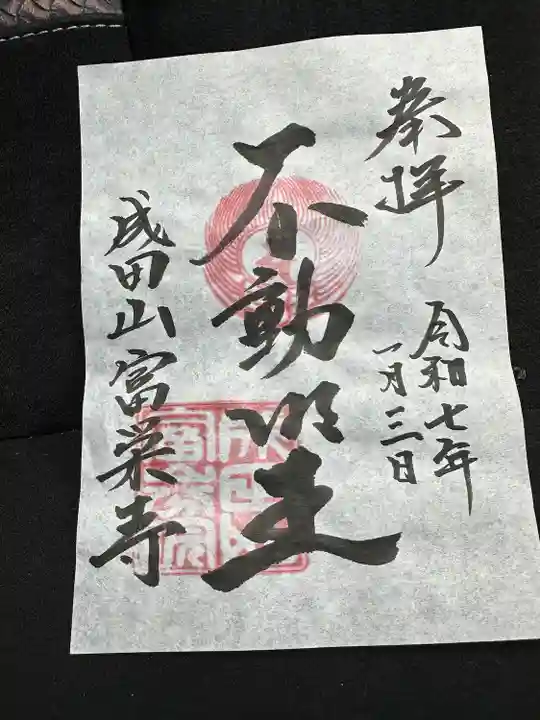 奉拝
令和七年
一月三日
不動明王
成田山富栄寺